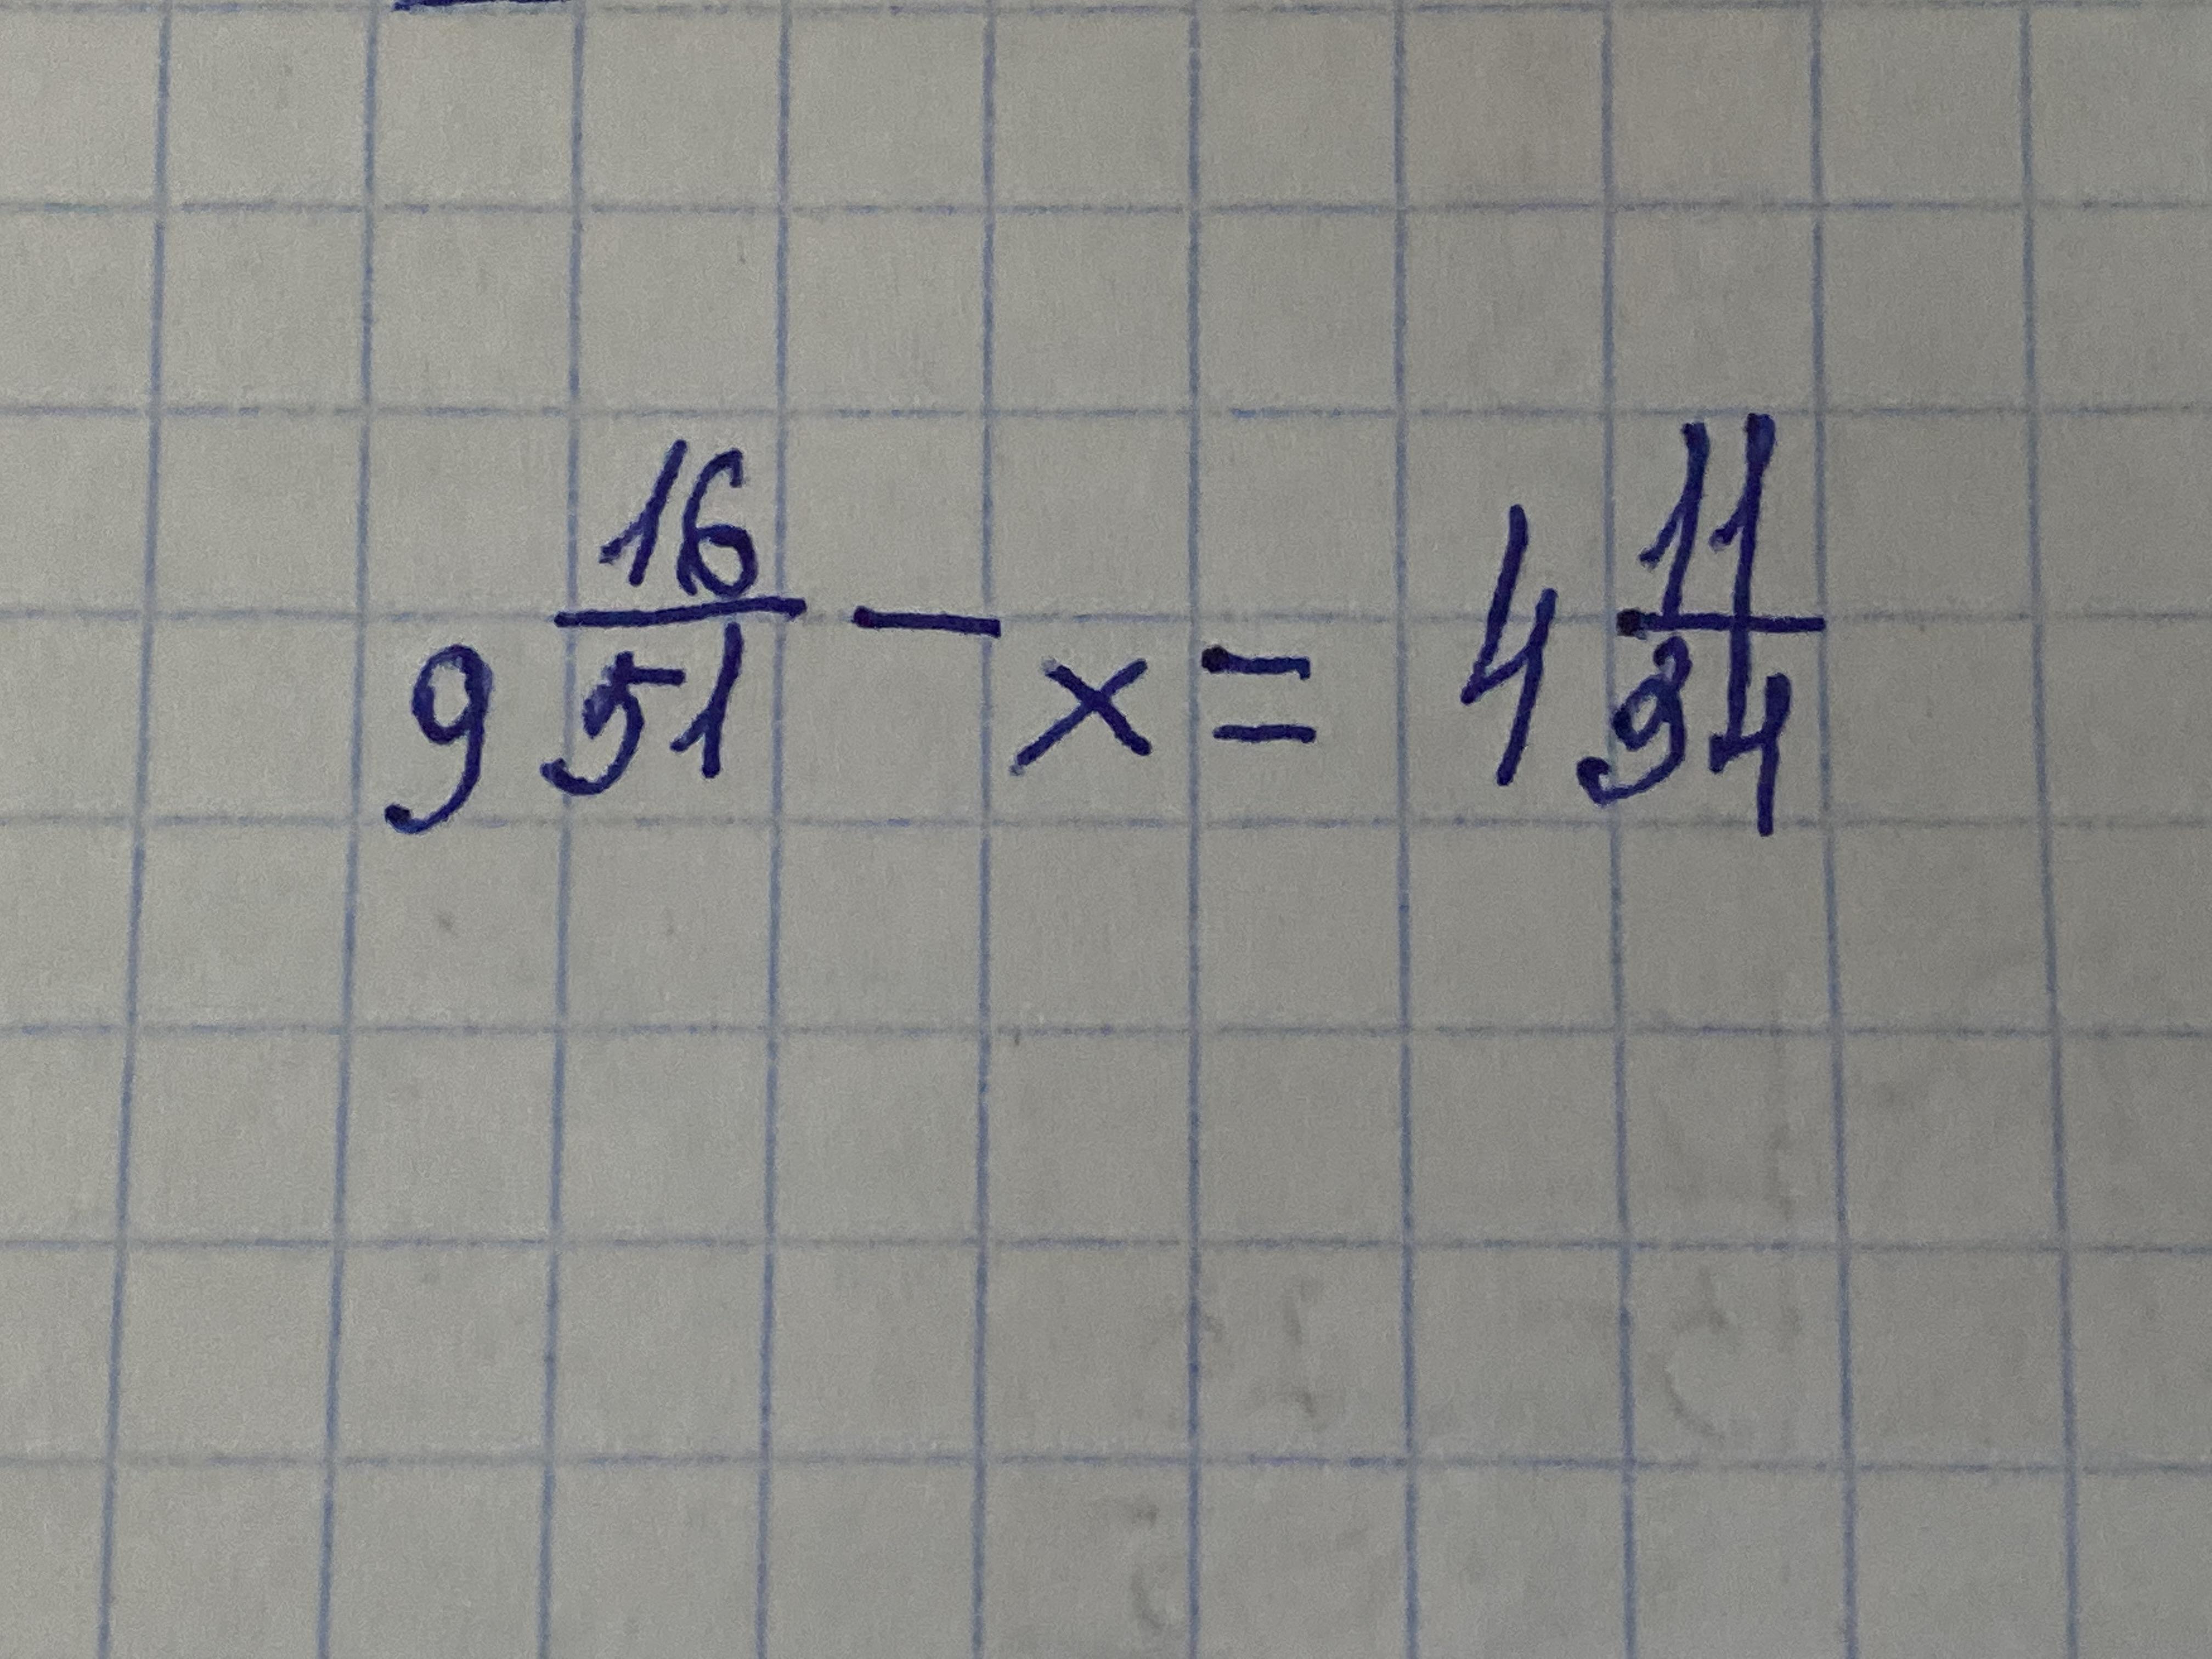 9 16/51 - x = 4 11/34